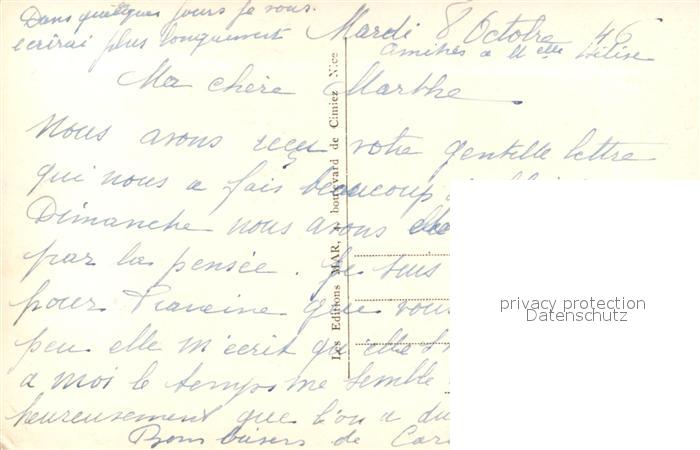 Dans quelques jours je vous
écrirai plus longuement
Mardi 8 Octobre 46
Amitiés a Melle
Ma chère Marthe
Nous avons reçu votre gentille lettre
qui nous a fais beaucoup
Dimanche nous avons
par la pensée. Je suis
pour Francine que vous
peu elle m'écrit qu'elle
a moi le temps me semble
heureusement que l'on a du
Bons baisers de
Les Editions MAR, boulevard de Cimiez Nice
privacy protection
Datenschutz